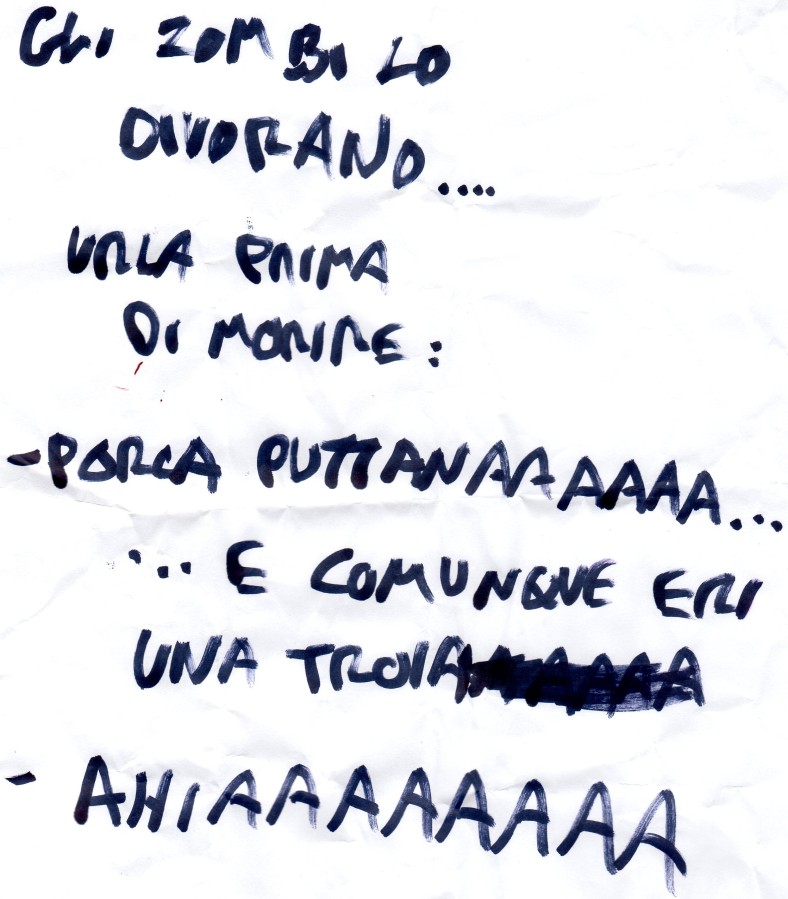 GLI ZOMBI LO
DIVORANO....
URLA PRIMA
DI MORIRE:
-PORCA PUTTANAAAAAAA...
... E COMUNQUE ERI
UNA TROIA
- AHIAAAAAAAA